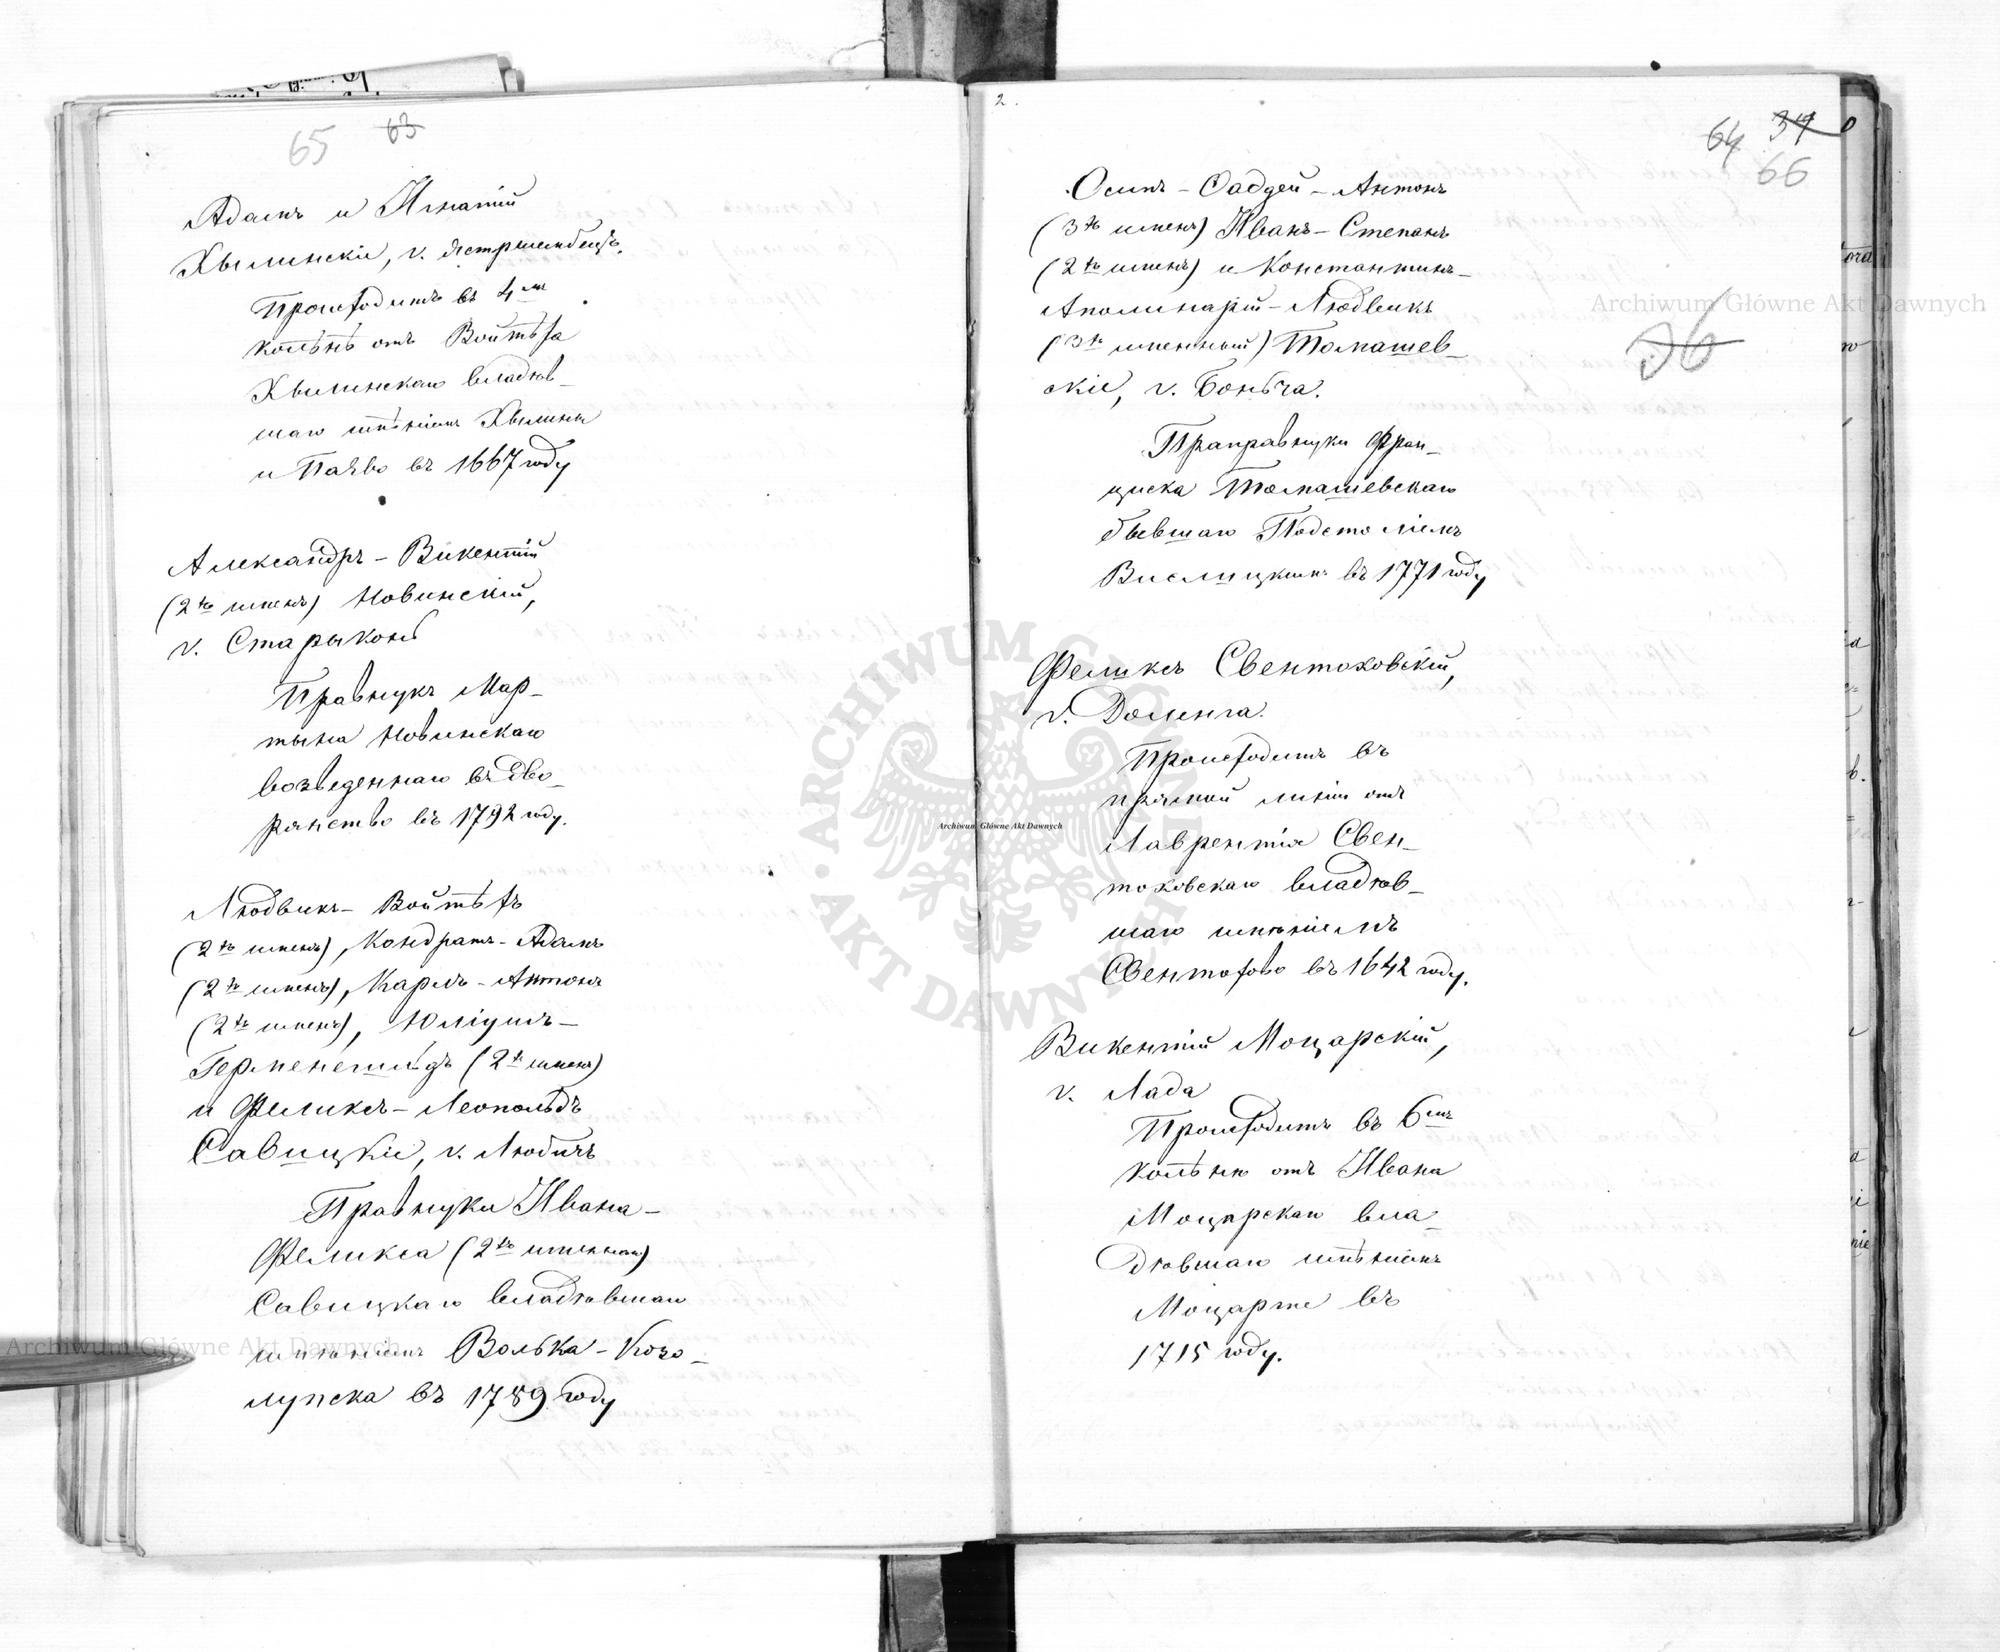 65 63
Адамъ и Игнатій
Хвылинскіе, г. Ястршембецъ.
Происходитъ въ 4мъ
колѣнѣ отъ Войтѣха
Хвылинскаго владѣв-
шаго имѣніемъ Хвылины
и въ 1667 году
Александръ - Викентій
(2хъ именъ) Новинскій,
г. Старыконь
Правнукъ Мар-
тына Новинскаго
возведеннаго въ дво-
рянство въ 1792 году.
Людвикъ - Войтѣхъ
(2хъ именъ), Кондратъ - Адамъ
(2хъ именъ), Карлъ - Антонъ
(2хъ именъ), Юліушъ -
Герменегильдъ (2хъ именъ)
и Феликсъ - Леопольдъ
Савицкіе, г. Любичъ
Правнуки Ивана -
Феликса (2хъ именнаго)
Савицкаго владѣвшаго
имѣніемъ Волька - Козо-
лупска въ 1789 году
2.
64 37
66
36
Осипъ - Фаддей - Антонъ
(3хъ именъ) Иванъ - Степанъ
(2хъ именъ) и Константинъ -
Аполинарій - Людвикъ
(3хъ именный) Томашев-
скіе, г. Боньча.
Праправнуки Фран-
циска Томашевскаго
бывшаго Подстоліемъ
Вислицкимъ въ 1771 году
Феликсъ Свентоховскій,
г. Доленга.
Происходитъ въ
прямой линіи отъ
Лаврентія Свен-
тоховскаго владѣв-
шаго имѣніемъ
Свентохово въ 1642 году.
Викентій Моцарскій,
г. Лада
Происходитъ въ 6мъ
колѣнѣ отъ Ивана
Моцарскаго вла-
дѣвшаго имѣніемъ
Моцарже въ
1715 году.
Archiwum Główne Akt Dawnych
Archiwum Główne Akt Dawnych
Archiwum Główne Akt Dawnych
ARCHIWUM GŁÓWNE AKT DAWNYCH